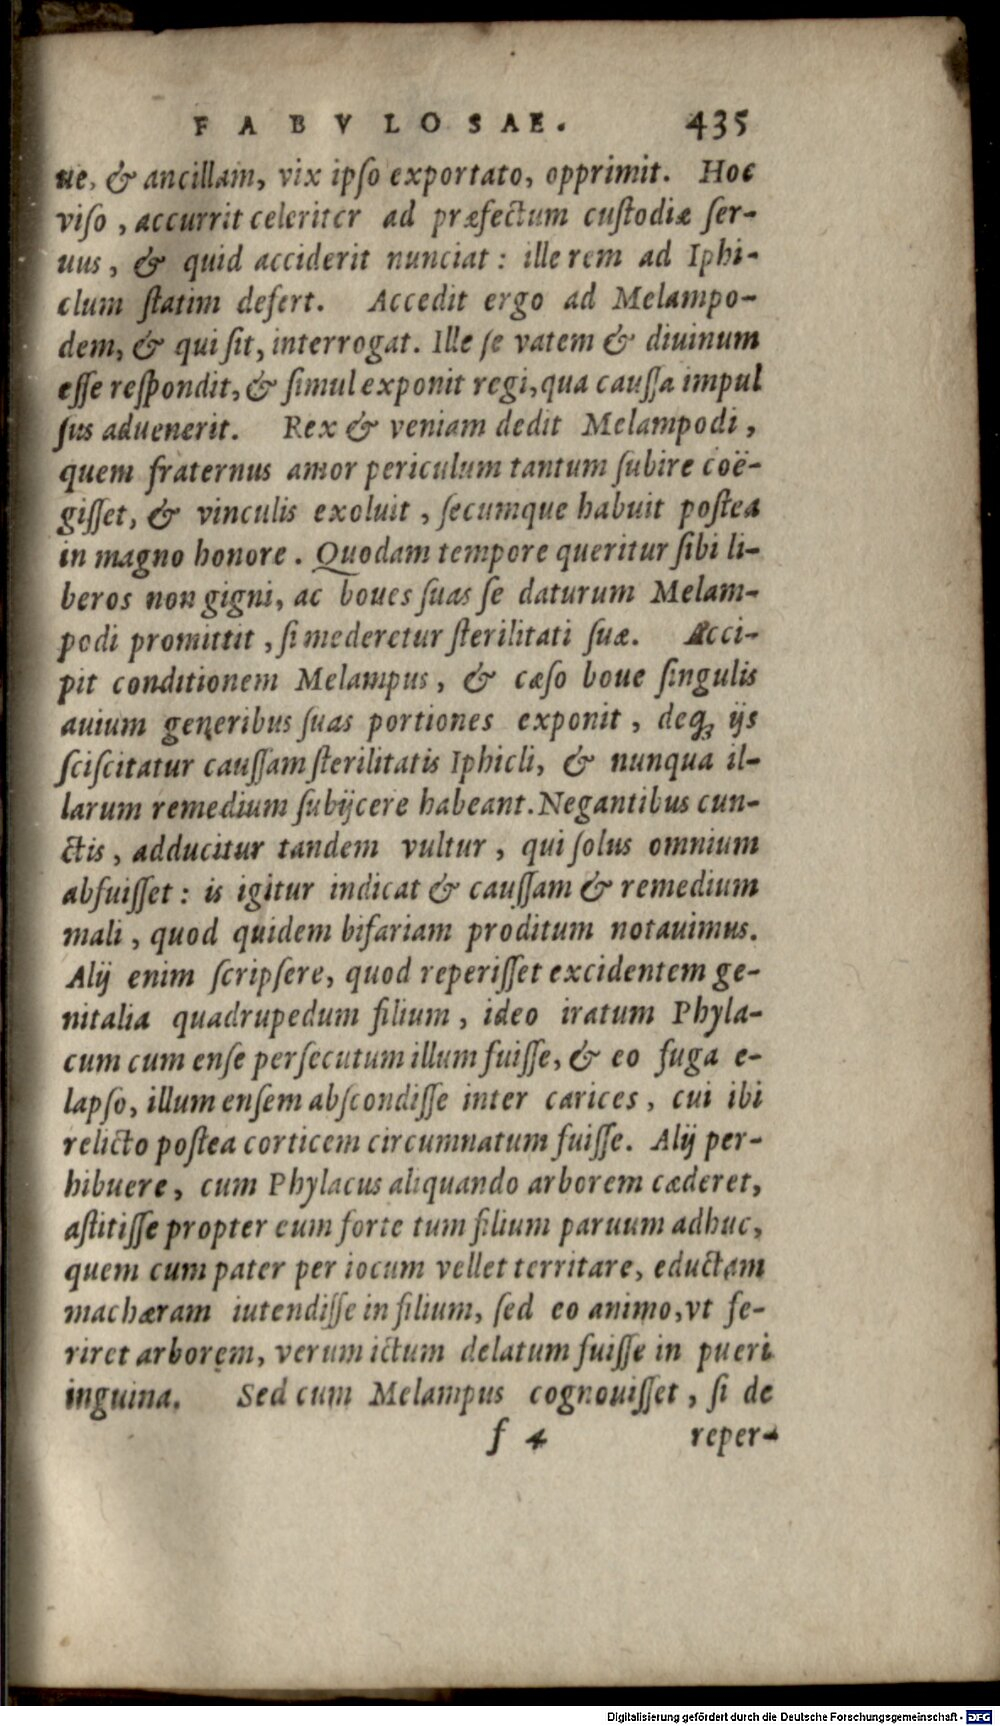 FABVLOSAE. 435
ue, & ancillam, vix ipſo exportato, opprimit. Hoc
viſo, accurrit celeriter ad præfectum cuſtodiæ ſer-
uus, & quid acciderit nunciat: ille rem ad Iphi-
clum ſtatim defert. Accedit ergo ad Melampo-
dem, & qui ſit, interrogat. Ille ſe vatem & diuinum
eſſe reſpondit, & ſimul exponit regi, qua cauſſa impul
ſus aduenerit. Rex & veniam dedit Melampodi,
quem fraternus amor periculum tantum ſubire coë-
giſſet, & vinculis exoluit, ſecumque habuit poſtea
in magno honore. Quodam tempore queritur ſibi li-
beros non gigni, ac boues ſuas ſe daturum Melam-
podi promittit, ſi mederetur ſterilitati ſuæ. Acci-
pit conditionem Melampus, & cæſo boue ſingulis
auium generibus ſuas portiones exponit, deq; ijs
ſciſcitatur cauſſam ſterilitatis Iphicli, & nunqua il-
larum remedium ſubijcere habeant. Negantibus cun-
ctis, adducitur tandem vultur, qui ſolus omnium
abfuiſſet: is igitur indicat & cauſſam & remedium
mali, quod quidem bifariam proditum notauimus.
Alij enim ſcripſere, quod reperiſſet excidentem ge-
nitalia quadrupedum filium, ideo iratum Phyla-
cum cum enſe perſecutum illum fuiſſe, & eo fuga e-
lapſo, illum enſem abſcondiſſe inter carices, cui ibi
relicto poſtea corticem circumnatum fuiſſe. Alij per-
hibuere, cum Phylacus aliquando arborem cæderet,
aſtitiſſe propter eum forte tum filium paruum adhuc,
quem cum pater per iocum vellet territare, eductam
machæram iutendiſſe in filium, ſed eo animo, vt fe-
riret arborem, verum ictum delatum fuiſſe in pueri
inguina. Sed cum Melampus cognouiſſet, ſi de
f 4 reper-
Digitalisierung gefördert durch die Deutsche Forschungsgemeinschaft - DFG